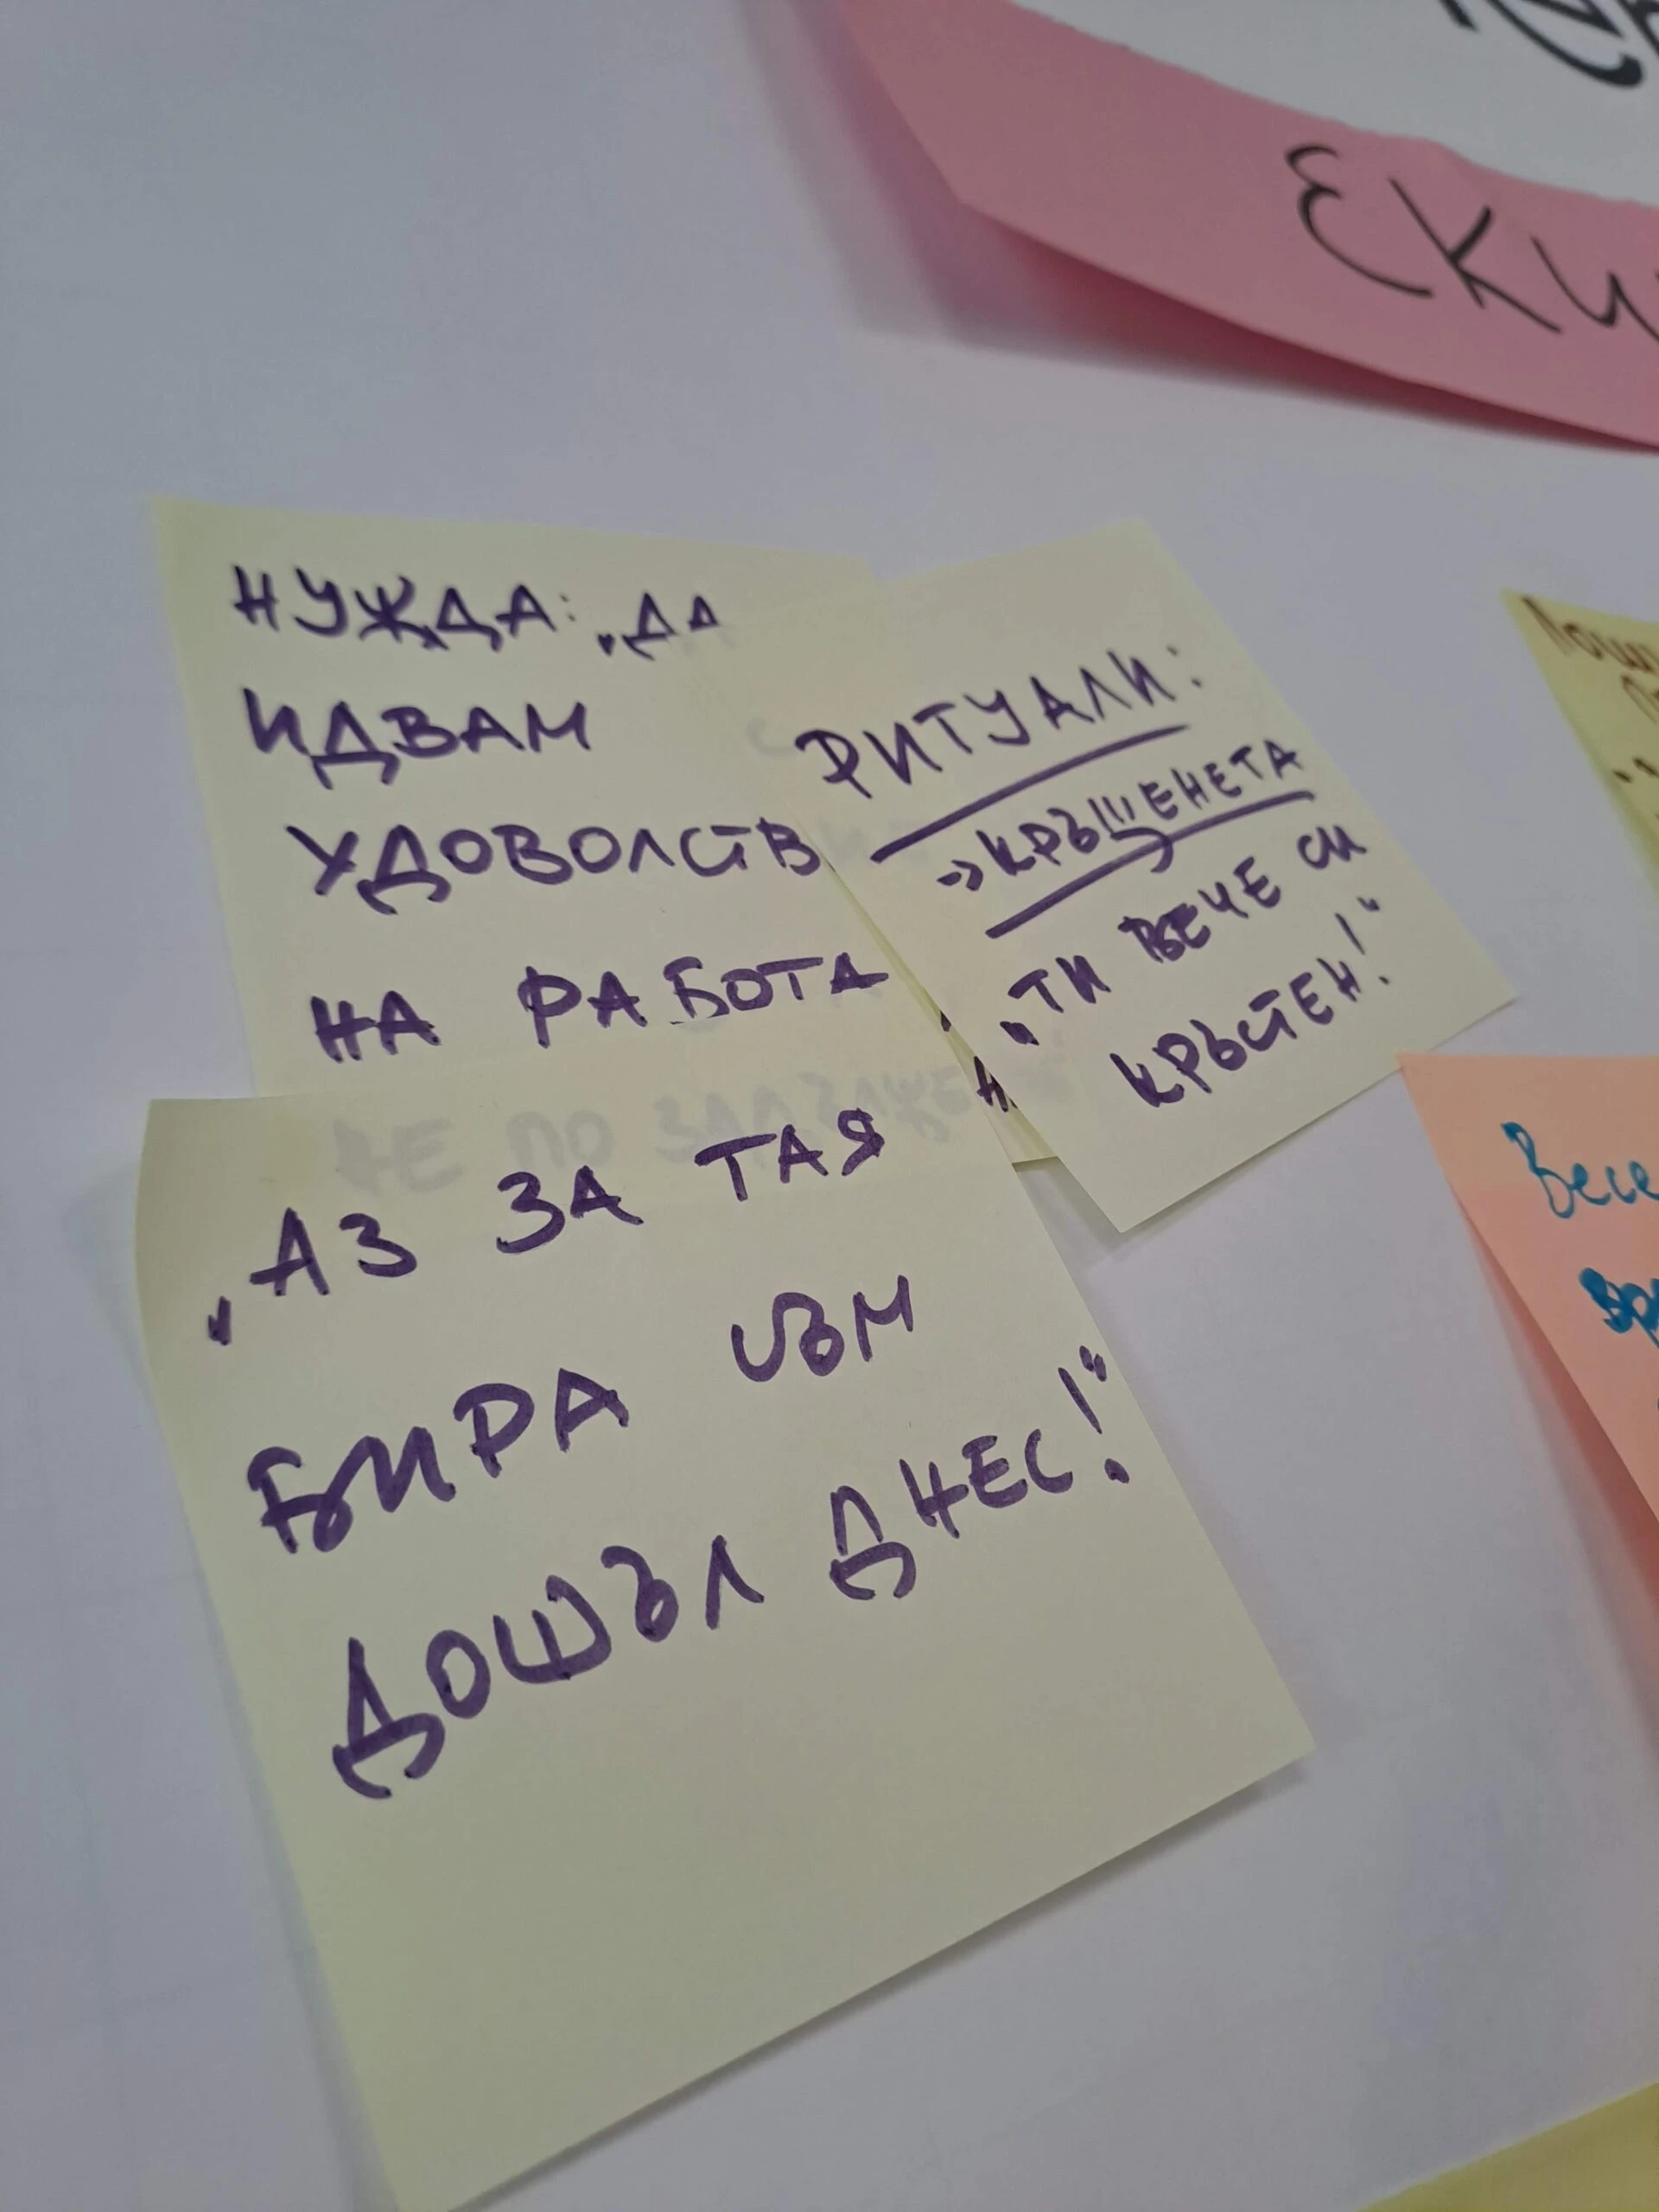 ЕКИ
НУЖДА: „ДА
ИДВАМ
УДОВОЛСТВ
НА РАБОТА
НЕ ПО ЗАДЪЛЖЕН
РИТУАЛИ:
-» КРЪЩЕНЕТА
„ТИ ВЕЧЕ СИ
КРЪСТЕН!“
„АЗ ЗА ТАЯ
БИРА СЪМ
ДОШЪЛ ДНЕС!“
Весе
вр